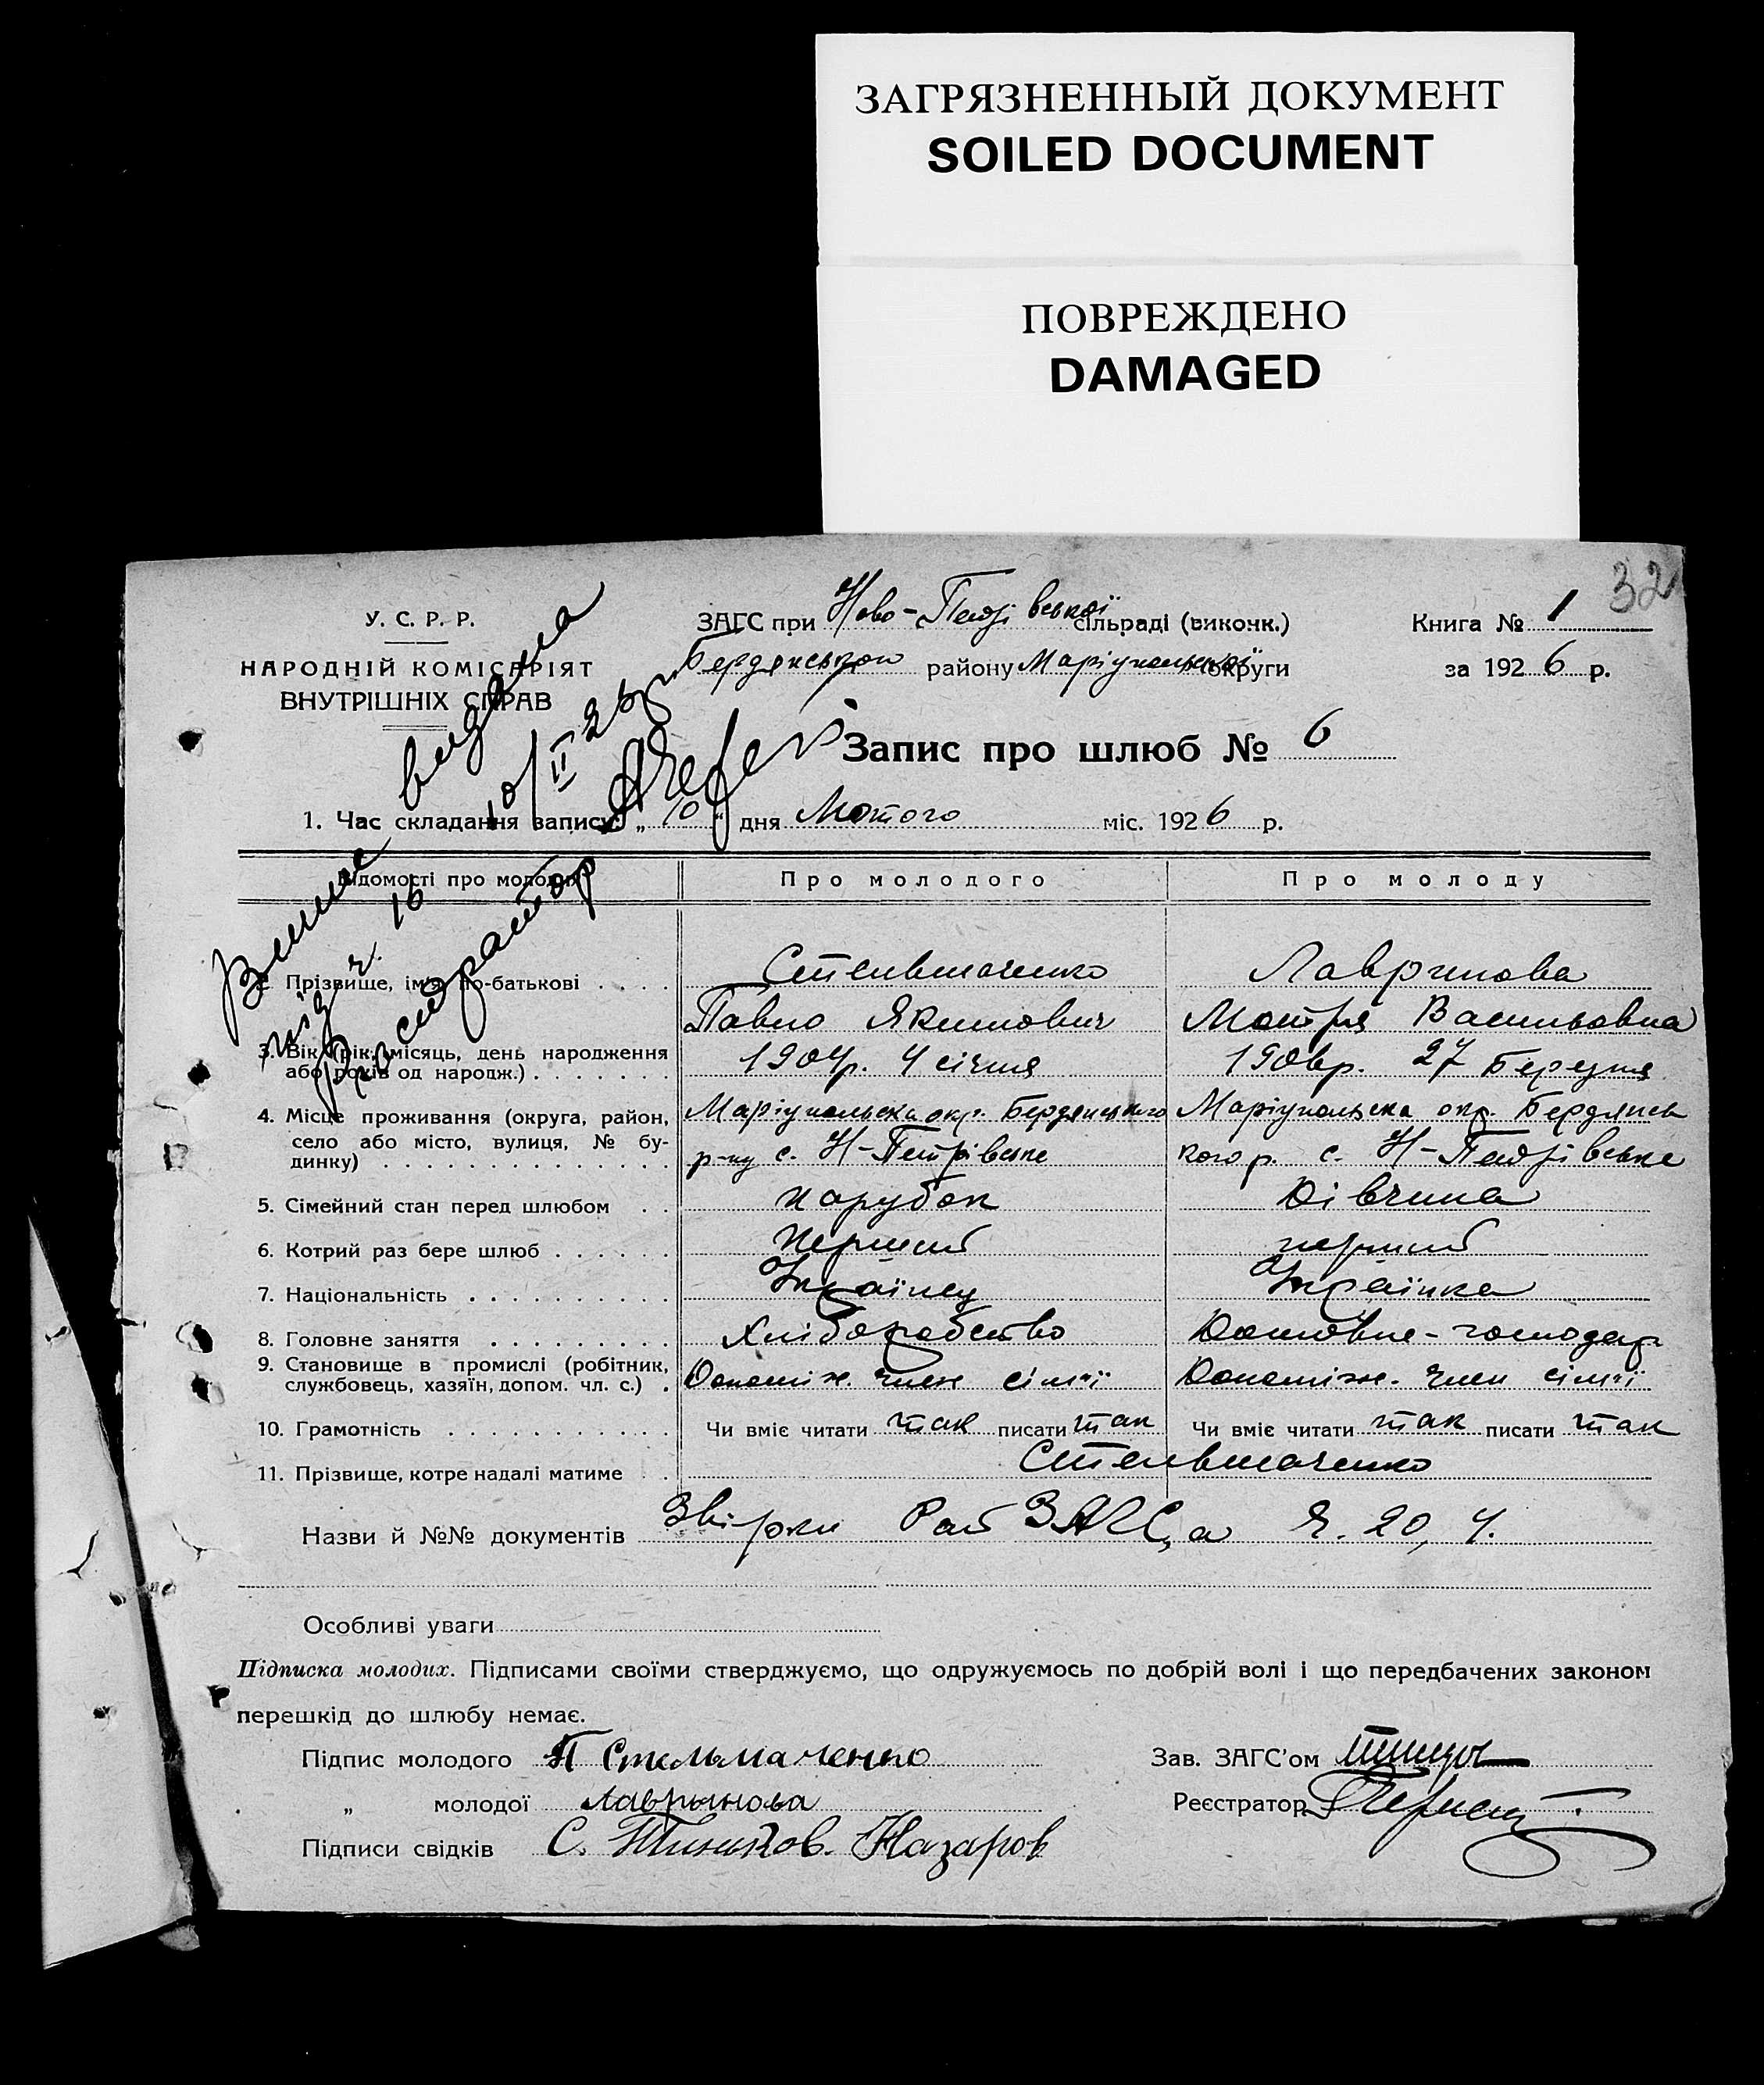 ЗАГРЯЗНЕННЫЙ ДОКУМЕНТ
SOILED DOCUMENT
ПОВРЕЖДЕНО
DAMAGED
32
У. С. Р. Р.
НАРОДНІЙ КОМІСАРІЯТ
ВНУТРІШНІХ СПРАВ
ЗАГС при Ново-Петрівської сільраді (виконк.)
Бердянського району Маріупольської округи
Книга № 1
за 1926 р.
Запис про шлюб № 6
1. Час складання запису: „ 10 “ дня Лютого міс. 1926 р.
видана
10/II 26 р.
Реєстратор
Відомості про молодих
Про молодого
Про молоду
2. Прізвище, ім'я, по-батькові . . . .
Стельмаченко
Павло Якимович
Лавринова
Мотря Васильовна
3. Вік (рік, місяць, день народження
або років од народж.) . . . . . . .
1904р. 4 січня
1906р. 27 Березня
4. Місце проживання (округа, район,
село або місто, вулиця, № бу-
динку) . . . . . . . . . . . . . .
Маріупольска окр. Бердянського
р-ну с. Н-Петрівське
Маріупольска окр. Бердянсь
кого р. с. Н-Петрівське
5. Сімейний стан перед шлюбом . .
парубок
Дівчина
6. Котрий раз бере шлюб . . . . . .
Перший
перший
7. Національність . . . . . . . . . .
Українец
Українка
8. Головне заняття . . . . . . . . .
Хліборобство
Домовне-господар.
9. Становище в промислі (робітник,
службовець, хазяїн, допом. чл. с.) .
Допоміж. член сім'ї
Допоміж. член сім'ї
10. Грамотність . . . . . . . . . . .
Чи вміє читати так писати так
Чи вміє читати так писати так
11. Прізвище, котре надалі матиме . .
Стельмаченко
Назви й №№ документів ЗАГС,а ч. 20, 4.
Особливі уваги
Підписка молодих. Підписами своїми стверджуємо, що одружуємось по добрій волі і що передбачених законом
перешкід до шлюбу немає.
Підпис молодого П Стельмаченко
„ молодої Лаврынова
Підписи свідків С. Назаров
Зав. ЗАГС'ом
Реєстратор